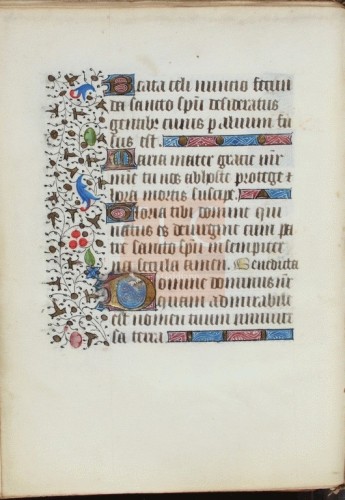 Beata celi nuncio fecun
da sancto spu desideratus
gentibz cuius p aluum fu
sus est.
Maria mater gracie mr
mie tu nos ab hoste protege et
hora mortis suscipe.
Gloria tibi domine qui
natus es de uirgine cum pa
tre sancto spu in sempiter
na secula amen. Benedicta
Domine dominus nr
quam admirabile
est nomen tuum in uniuer
sa terra